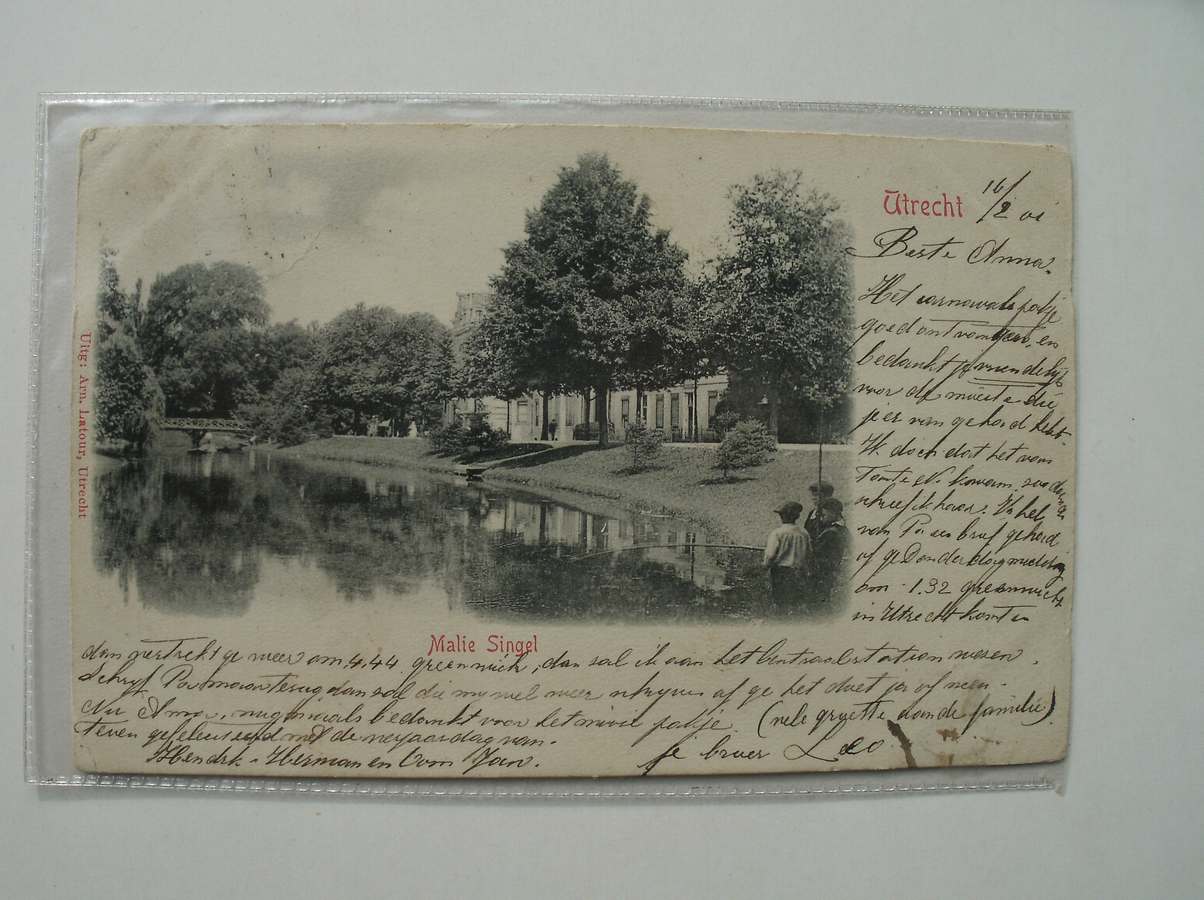 Utrecht
16/2 01
Beste Anna.
Het carnavals pakje
goed ontvangen, en
bedankt je vriendelijk
voor de moeite die
je er van gehad hebt.
Ik dacht dat het van
Tante N. kwam,
schreef ik haar. Ik heb
van Pa een brief gehad
of ge Donderdagmiddag
om 1.32 greenwich
in Utrecht komt en
Uitg: Arn. Latour, Utrecht
Malie Singel
dan vertrekt ge weer om 4.44 greenwich, dan zal ik aan het Centraalstation wezen.
Schrijf Pa maar terug dan zal die mij wel weer schrijven of ge het doet ja of neen.
Nu Anna, nogmaals bedankt voor het mooie pakje (vele groeten aan de familie)
Teven gefeliciteerd met de verjaardag van.
Hendrk - Herman en Oom Jan.
je broer Leo